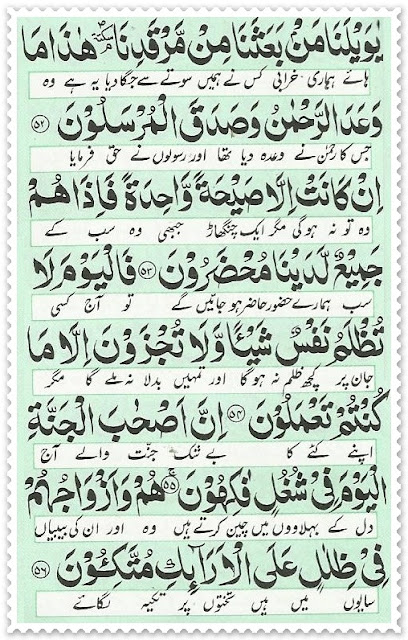 يٰوَيْلَنَا مَنْۢ بَعَثَنَا مِنْ مَّرْقَدِنَا ۘ سكتة هٰذَا مَا
ہائے ہماری خرابی کس نے ہمیں سوتے سے جگا دیا یہ ہے وہ
وَعَدَ الرَّحْمٰنُ وَصَدَقَ الْمُرْسَلُوْنَ ﴿۵۲﴾
جس کا رحمٰن نے وعدہ دیا تھا اور رسولوں نے حق فرمایا
اِنْ كَانَتْ اِلَّا صَيْحَةً وَّاحِدَةً فَاِذَا هُمْ
وہ تو نہ ہوگی مگر ایک چنگھاڑ جبھی وہ سب کے
جَمِيْعٌ لَّدَيْنَا مُحْضَرُوْنَ ﴿۵۳﴾ فَالْيَوْمَ لَا
سب ہمارے حضور حاضر ہو جائیں گے تو آج کسی
تُظْلَمُ نَفْسٌ شَيْـًٔا وَّلَا تُجْزَوْنَ اِلَّا مَا
جان پر کچھ ظلم نہ ہوگا اور تمہیں بدلا نہ ملے گا مگر
كُنْتُمْ تَعْمَلُوْنَ ﴿۵۴﴾ اِنَّ اَصْحٰبَ الْجَنَّةِ
اپنے کئے کا بے شک جنّت والے آج
الْيَوْمَ فِيْ شُغُلٍ فٰكِهُوْنَ ﴿۵۵﴾ هُمْ وَاَزْوَاجُهُمْ
دل کے بہلاووں میں چین کرتے ہیں وہ اور ان کی بیبیاں
فِيْ ظِلٰلٍ عَلَى الْاَرَآئِكِ مُتَّكِـُٔوْنَ ﴿۵۶﴾
سایوں میں ہیں تختوں پر تکیہ لگائے